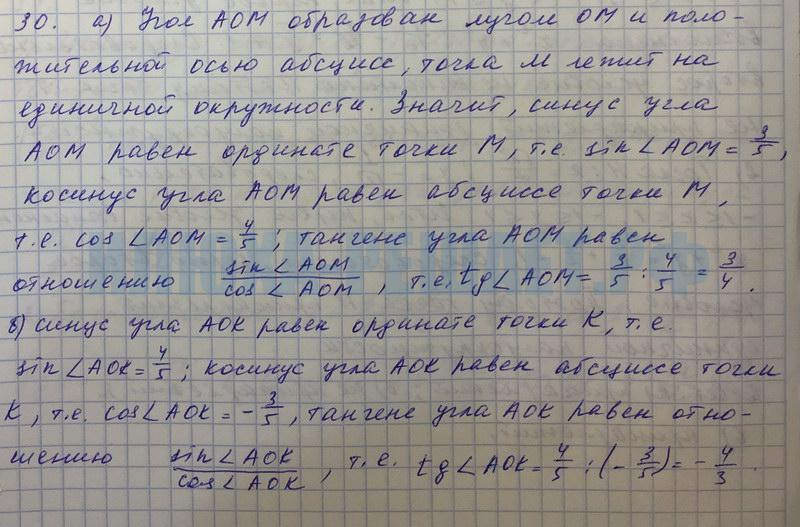 30. а) Угол AOM образован лучом OM и поло-
жительной осью абсцисс, точка M лежит на
единичной окружности. Значит, синус угла
AOM равен ординате точки M, т.е. sin∠AOM = 3/5,
косинус угла AOM равен абсциссе точки M,
т.е. cos∠AOM = 4/5; тангенс угла AOM равен
отношению sin∠AOM/cos∠AOM, т.е. tg∠AOM = 3/5 : 4/5 = 3/4.
б) синус угла AOK равен ординате точки K, т.е.
sin∠AOK = 4/5; косинус угла AOK равен абсциссе точки
K, т.е. cos∠AOK = -3/5, тангенс угла AOK равен отно-
шению sin∠AOK/cos∠AOK, т.е. tg∠AOK = 4/5 : (-3/5) = -4/3.